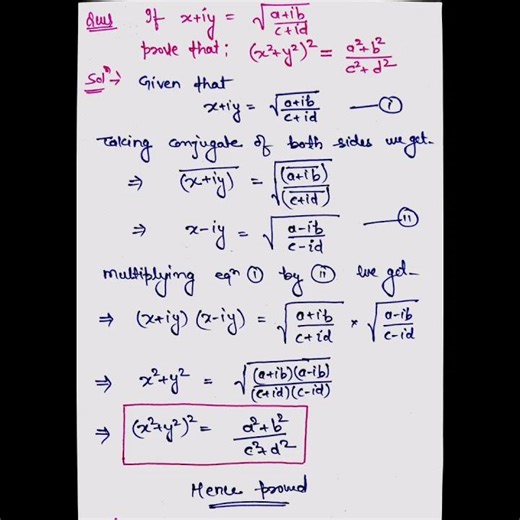 Ques If x+iy = √(a+ib / c+id)
prove that; (x²+y²)² = a²+b² / c²+d²
Solⁿ→ Given that
x+iy = √(a+ib / c+id) —— (i)
Taking conjugate of both sides we get-
⇒ \overline{(x+iy)} = √(\overline{(a+ib)} / \overline{(c+id)})
⇒ x-iy = √(a-ib / c-id) —— (ii)
Multiplying eqⁿ (i) by (ii) we get-
⇒ (x+iy) (x-iy) = √(a+ib / c+id) × √(a-ib / c-id)
⇒ x²+y² = √((a+ib)(a-ib) / (c+id)(c-id))
⇒ (x²+y²)² = a²+b² / c²+d²
Hence proved